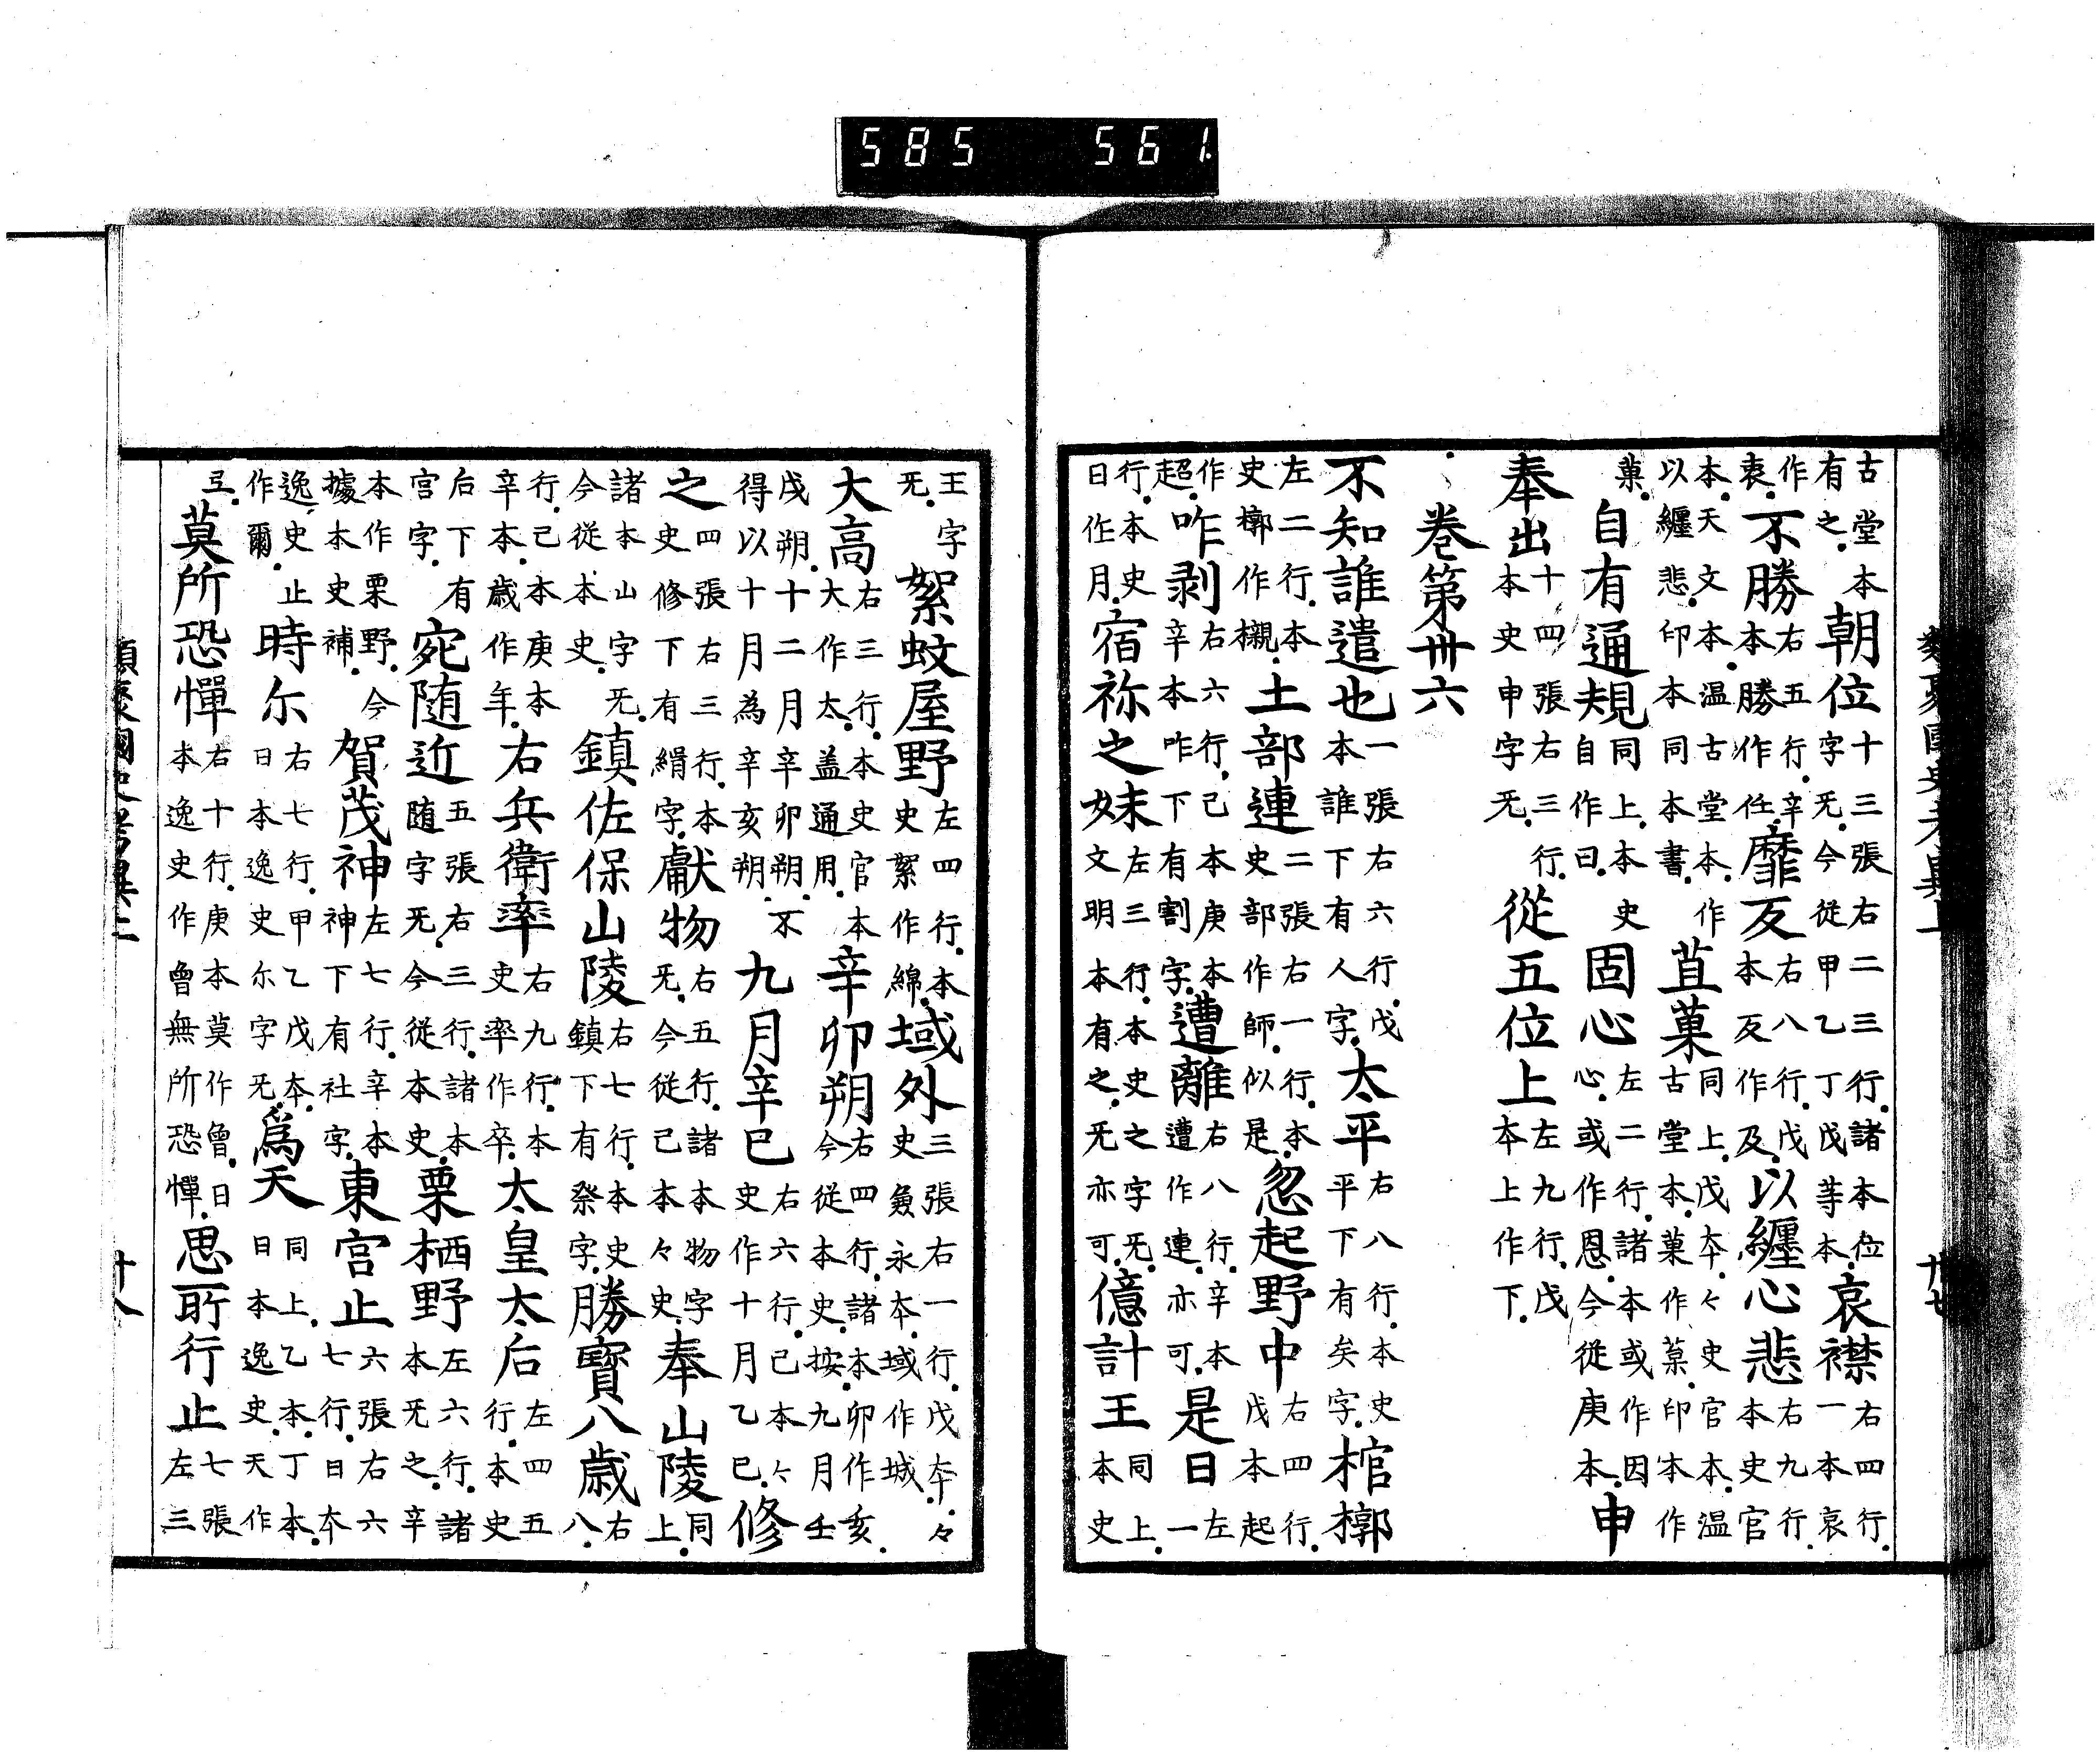 類聚國史考異上　十七
古堂本有之朝位十三張右二三行諸本位字旡今從甲乙丁戊等本哀襟右四行一本哀
作衷不勝右五行辛本勝作任靡反右八行戊本反作及以纏心悲右九行本史官
本天文本温古堂本作以纏悲印本同本書苴菓同上戊本々史官本温古堂本菓作菓印本作
菓自有通規同上本史自作曰固心左二行諸本或作因心或作恩今從庚本申
奉出十四張右三行本史申字旡從五位上左九行戊本上作下
巻第卅六
不知誰遣也一張右六行戊本誰下有人字太平右八行本史平下有矣字棺槨
左二行本史槨作櫬土部連二張右一行本史部作師似是忽起野中右四行戊本起
作超咋剥右六行己本庚本辛本咋下有割字遭離右八行辛本遭作連亦可是日左一
行本史日作月宿祢之妹左三行本史之字旡文明本有之旡亦可億計王同上本史
王字旡絮蚊屋野左四行本史絮作綿域外三張右一行戊本々史兼永本域作城
大高右三行本史官本大作太盖通用辛卯朔右四行諸本卯作亥今從本史按九月壬
戌朔十二月辛卯朔不得以十月為辛亥朔九月辛巳右六行己本々史作十月乙巳修
之四張右三行本史修下有絹字獻物右五行諸本物字旡今從己本々史奉山陵同上
諸本山字旡今從本史鎮佐保山陵右七行本史鎮下有祭字勝寳八歳右八
行己本庚本辛本歳作年右兵衛率右九行本史率作卒太皇太后左四五行本史
后下有宮字宛随近五張右三行諸本随字旡今從本史栗栖野左六行諸本旡之辛
本作栗野今據本史補賀茂神左七行辛本神下有社字東宮止六張右六七行日本
逸史止作爾時尓右七行甲乙戊本日本逸史尓字旡為天同上乙本丁本日本逸史天作
弖莫所恐憚右十行庚本莫作曾日本逸史作曾無所恐憚思所行止七張左三